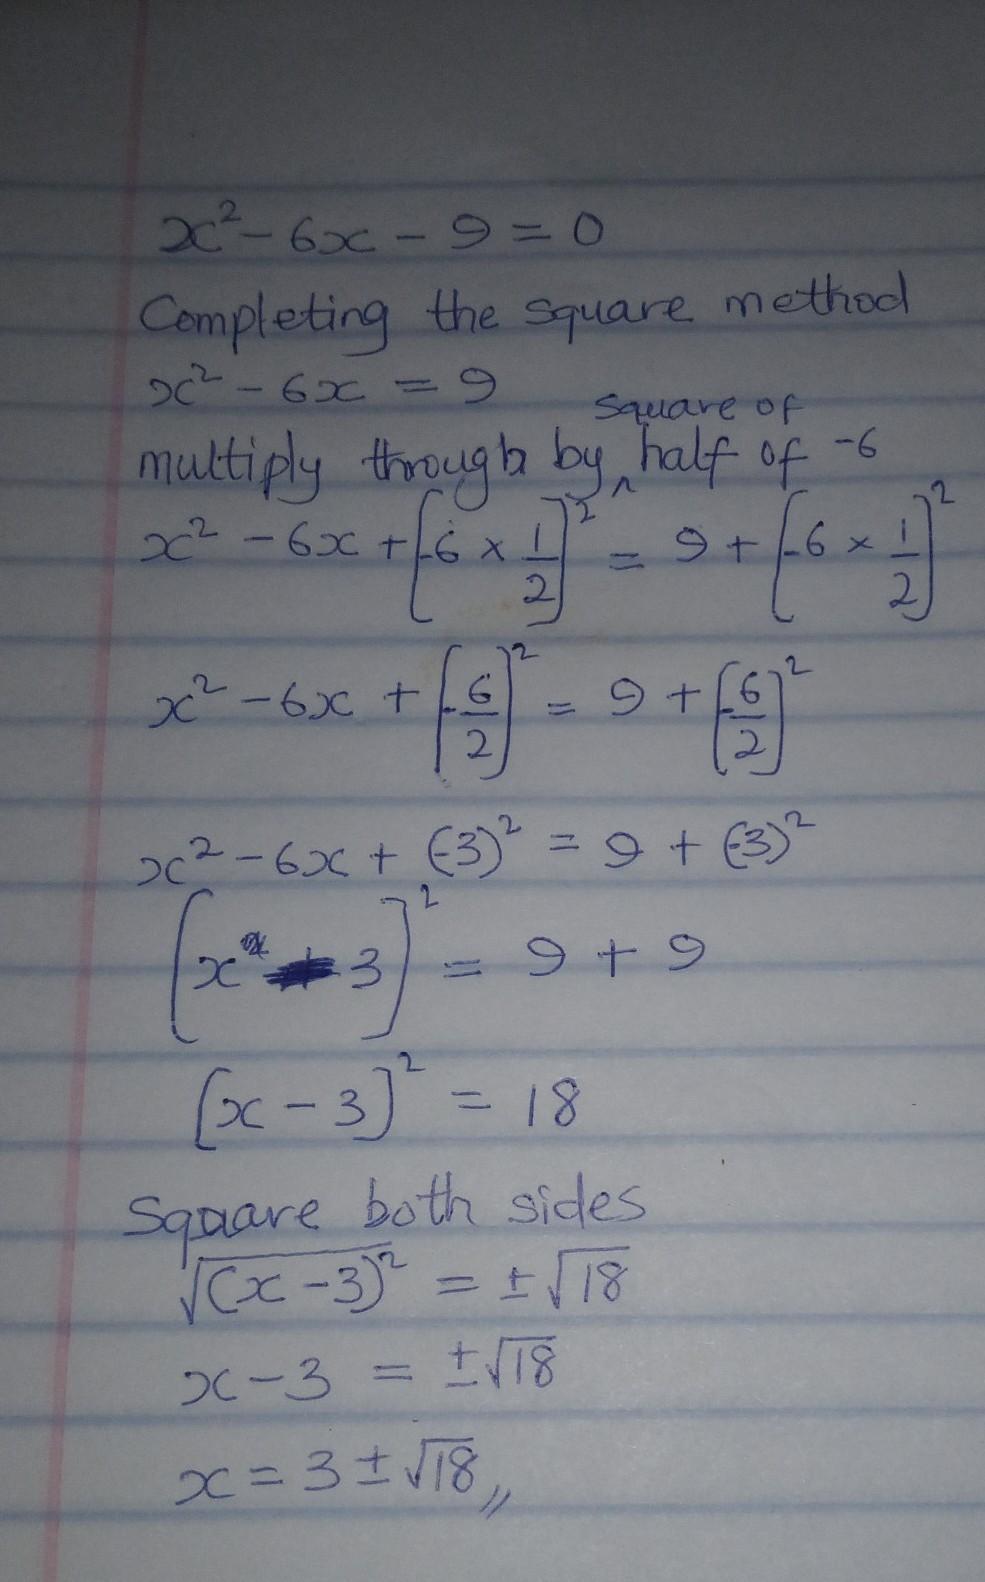 x² - 6x - 9 = 0
Completing the square method
x² - 6x = 9
square of
multiply through by ^ half of -6
x² - 6x + [-6 × 1/2]² = 9 + [-6 × 1/2]²
x² - 6x + [-6/2]² = 9 + [-6/2]²
x² - 6x + (-3)² = 9 + (-3)²
(x - 3)² = 9 + 9
[x - 3]² = 18
Sqaare both sides
√(x - 3)² = ± √18
x - 3 = ±√18
x = 3 ± √18,,